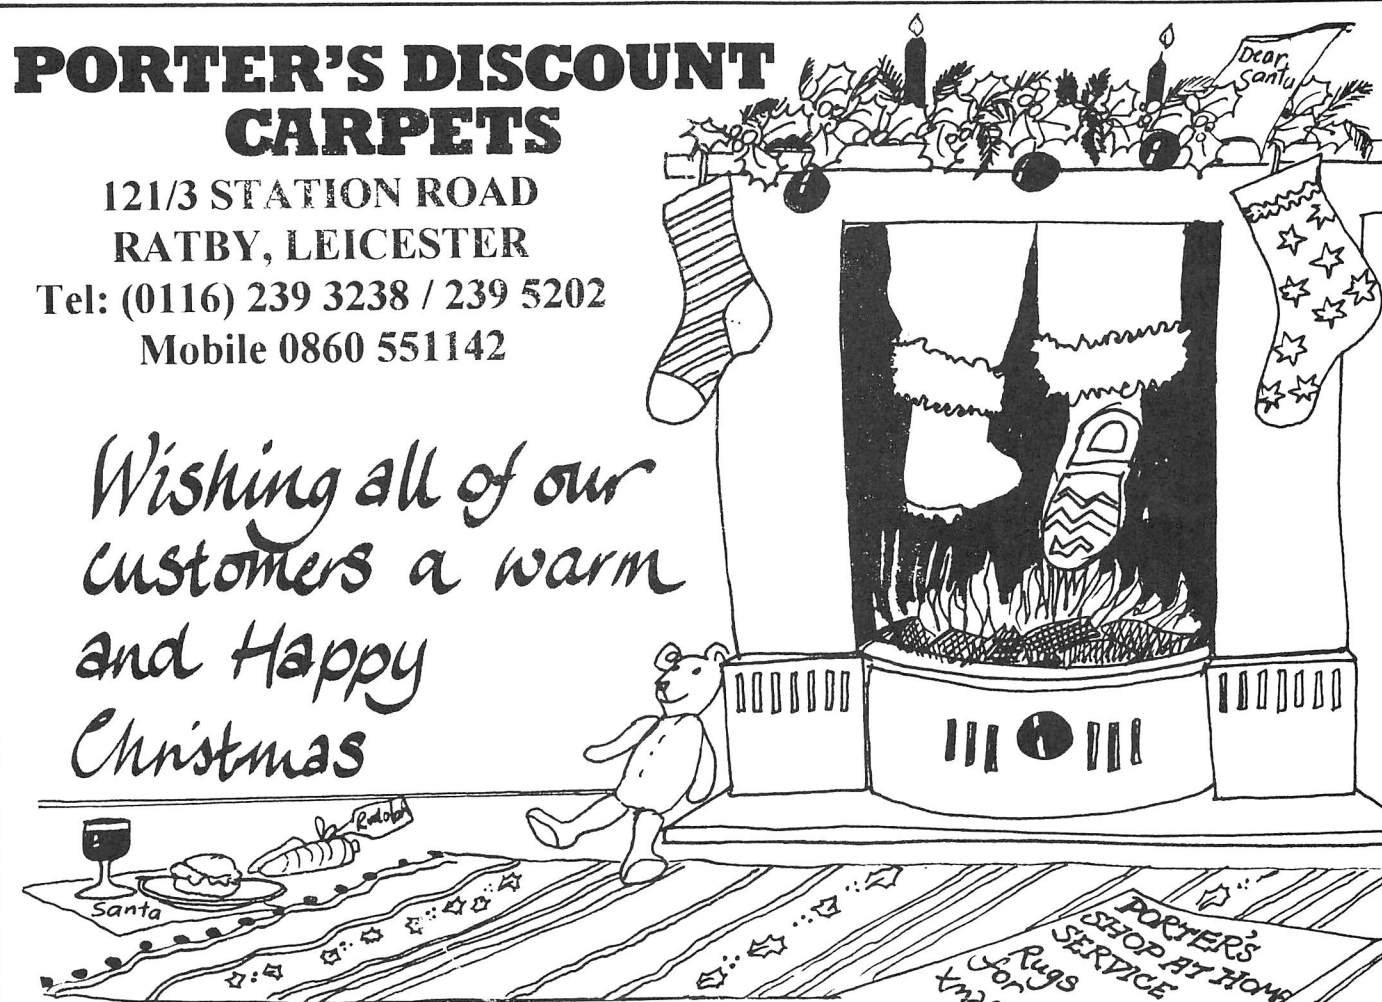 PORTER'S DISCOUNT
CARPETS
121/3 STATION ROAD
RATBY, LEICESTER
Tel: (0116) 239 3238 / 239 5202
Mobile 0860 551142
Wishing all of our
customers a warm
and Happy
Christmas
Dear
Santa
Rudolph
Santa
PORTER'S
SHOP AT HOME
SERVICE
Rugs
for